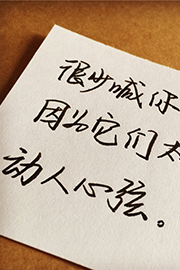 很少喊你
因为它们太
动人心弦。